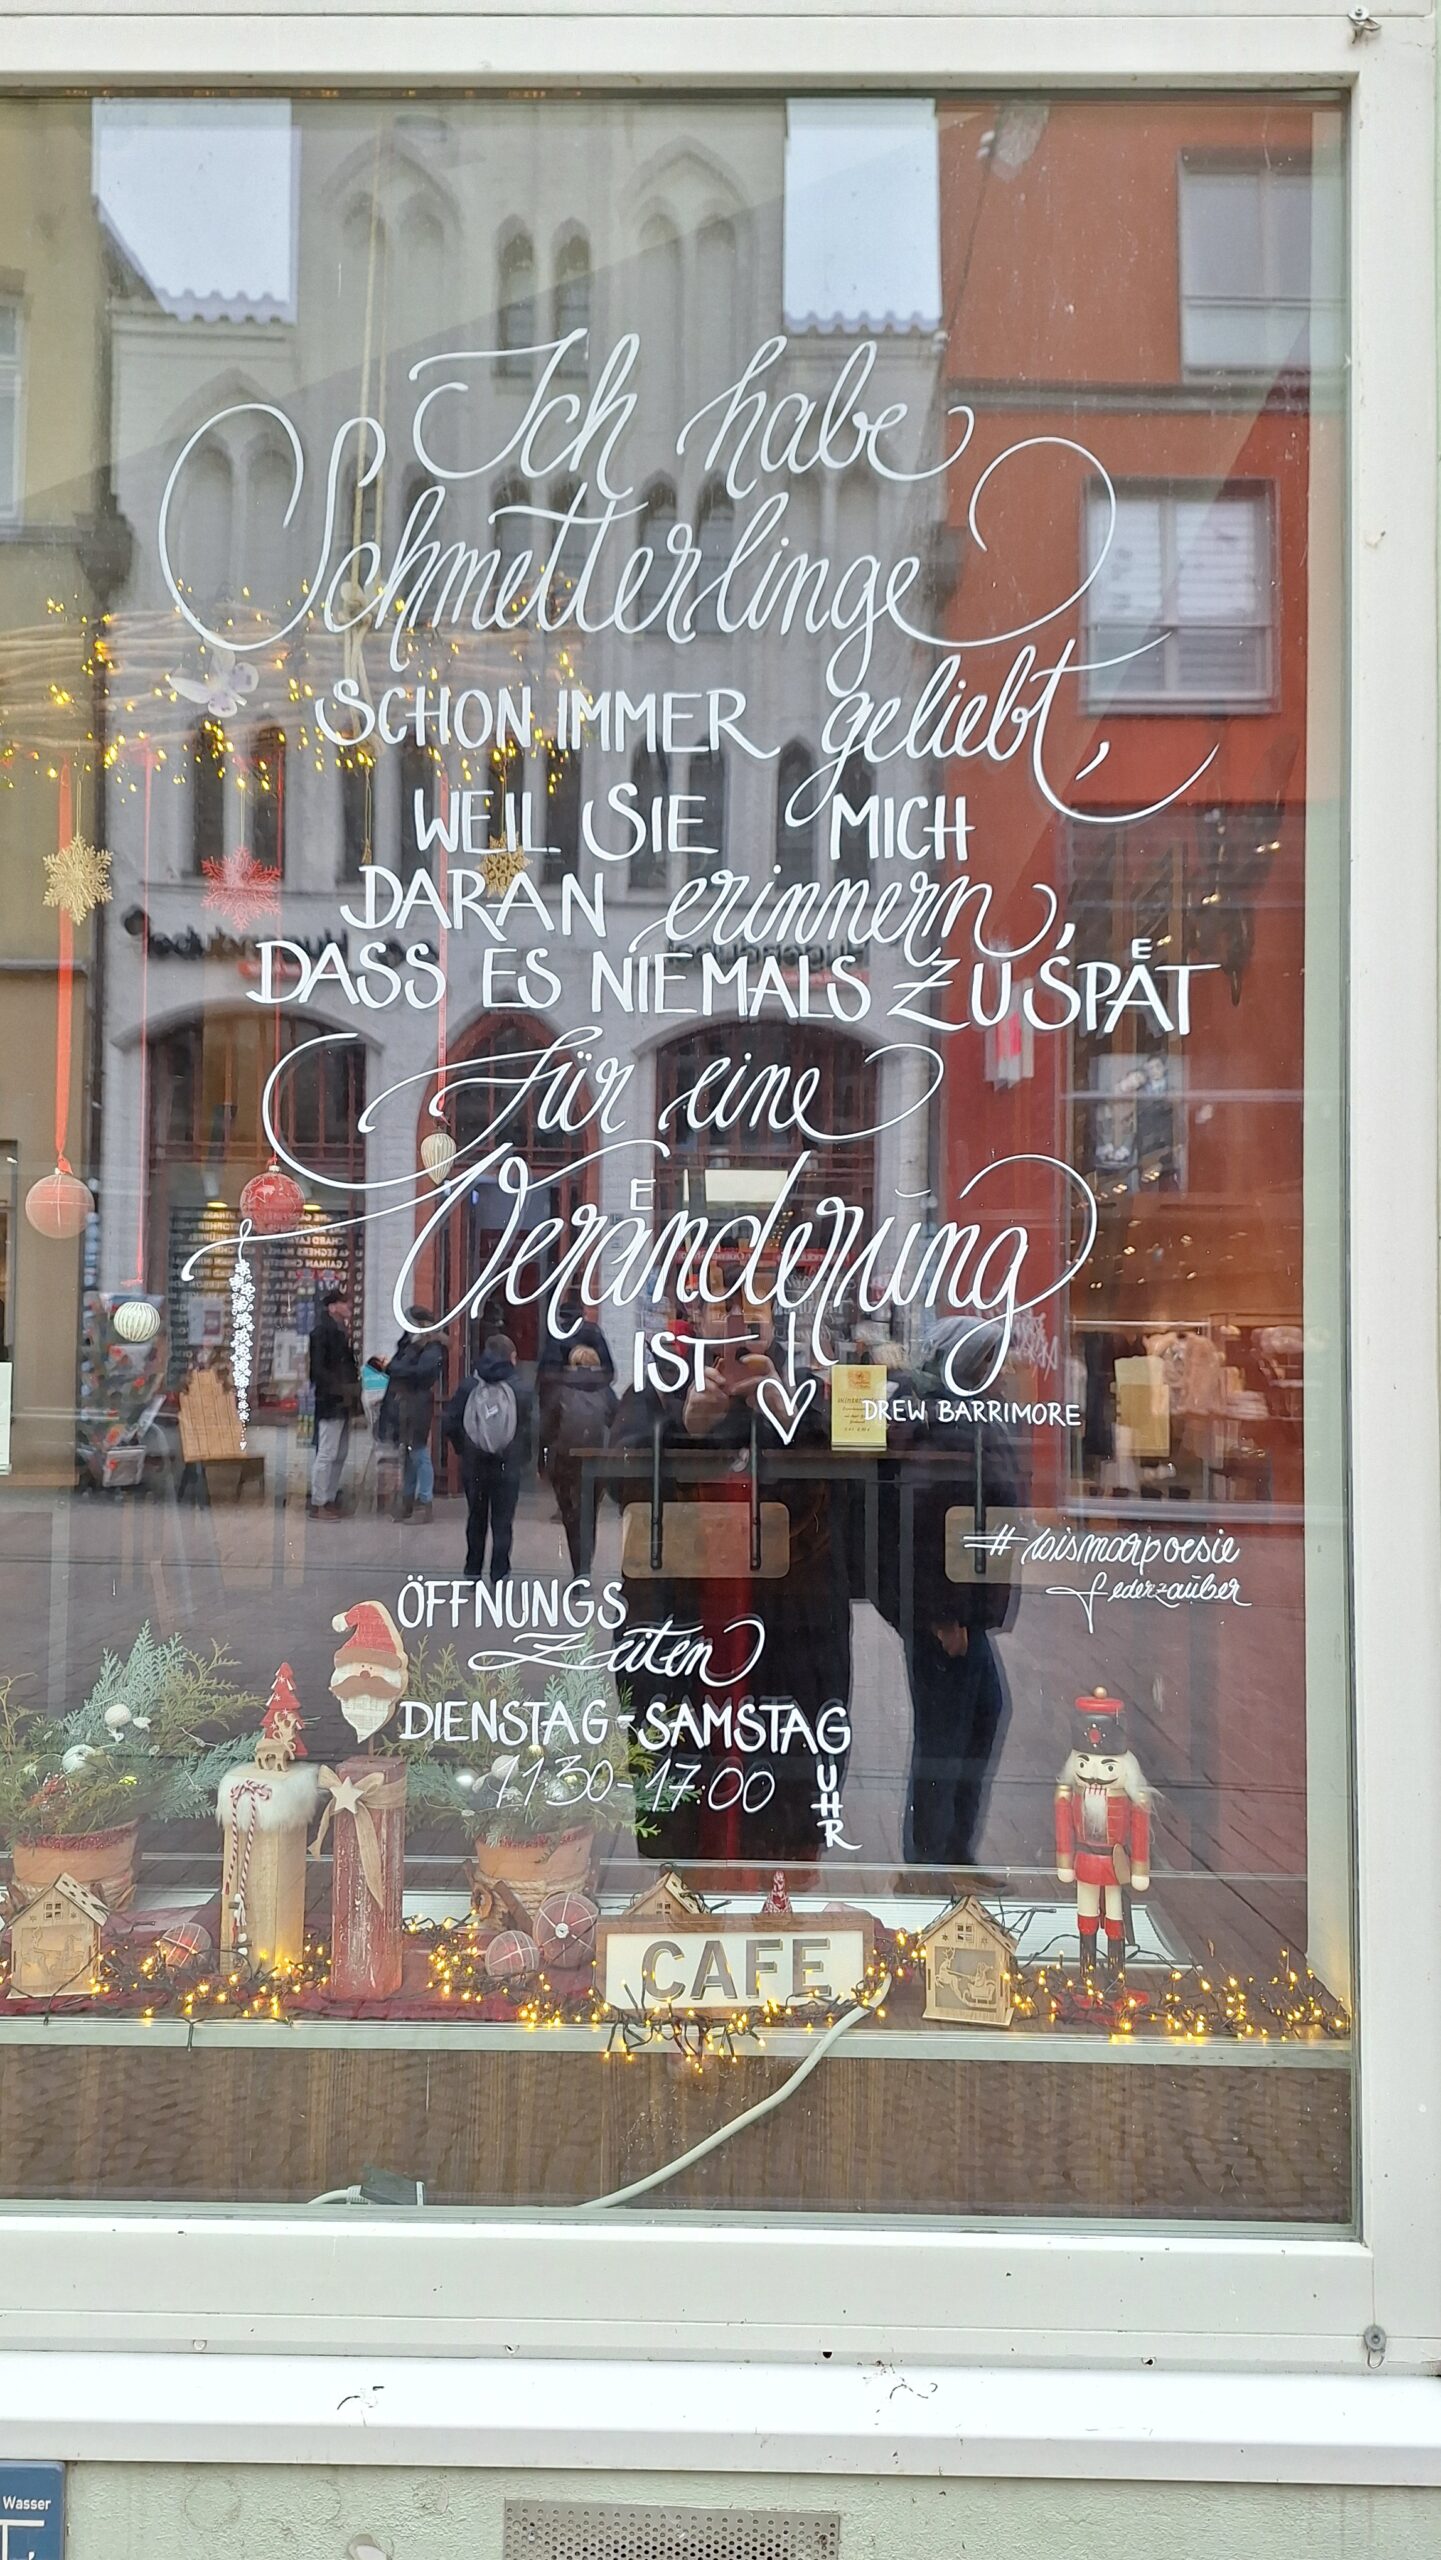 Ich habe
Schmetterlinge
SCHON IMMER geliebt,
WEIL SIE MICH
DARAN erinnern,
DASS ES NIEMALS ZU SPÄT
für eine
Veränderung
IST
DREW BARRIMORE
#wismarpoesie
federzauber
ÖFFNUNGS
Zeiten
DIENSTAG-SAMSTAG
11:30-17:00 UHR
CAFE
Wasser